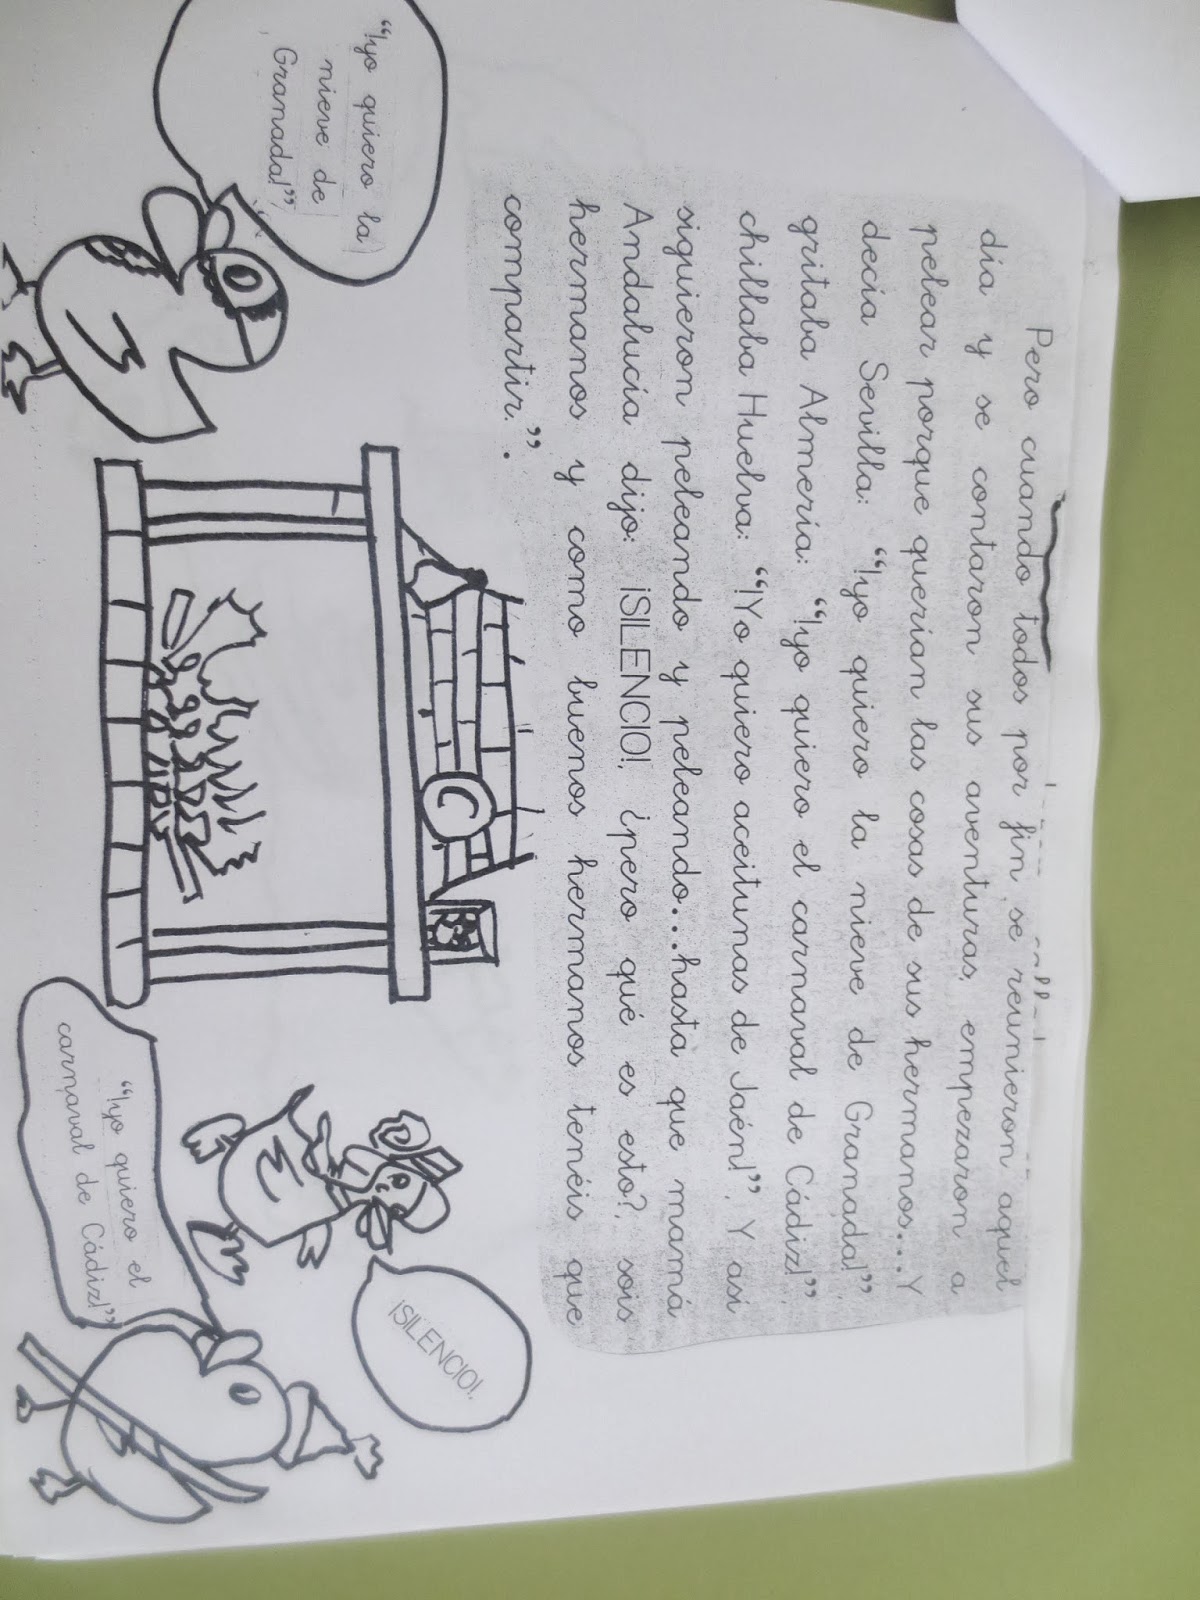 Pero cuando todos por fin se reunieron aquel
día y se contaron sus aventuras, empezaron a
pelear porque querían las cosas de sus hermanos...Y
decía Sevilla: “!yo quiero la nieve de Granada!”,
gritaba Almería: “!yo quiero el carnaval de Cádiz!”,
chillaba Huelva: “!Yo quiero aceitunas de Jaén!”. Y así
siguieron peleando y peleando...hasta que mamá
Andalucía dijo: ¡SILENCIO!, ¿pero qué es esto?, sois
hermanos y como buenos hermanos tenéis que
compartir.”.
“!yo quiero la
nieve de
Granada!”,
¡SILENCIO!,
“!yo quiero el
carnaval de Cádiz!”